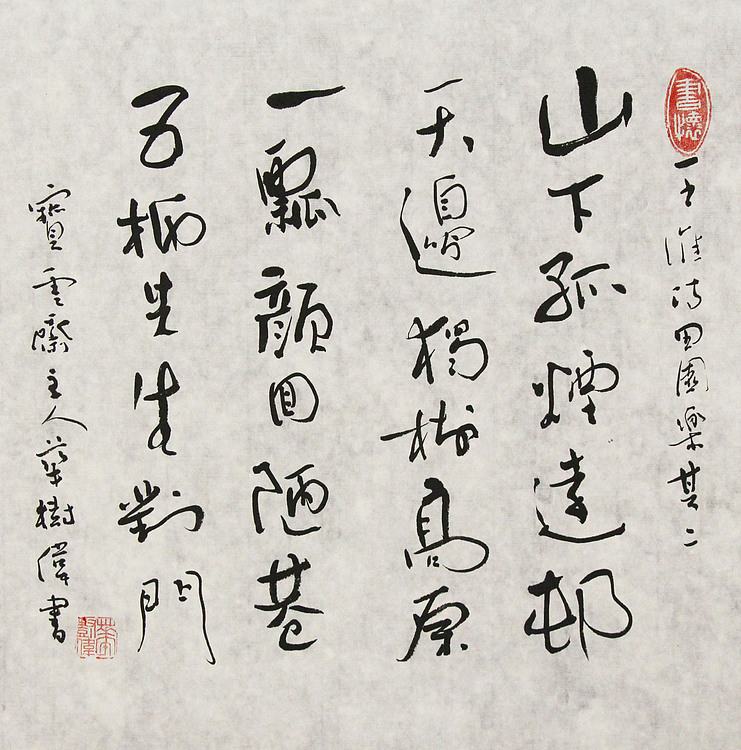 書懷
王維詩田園樂其二
山下孤煙遠邨
天邊獨樹高原
一瓢顏回陋巷
五柳先生對門
寶雲齋主人葉樹偉書
葉樹偉